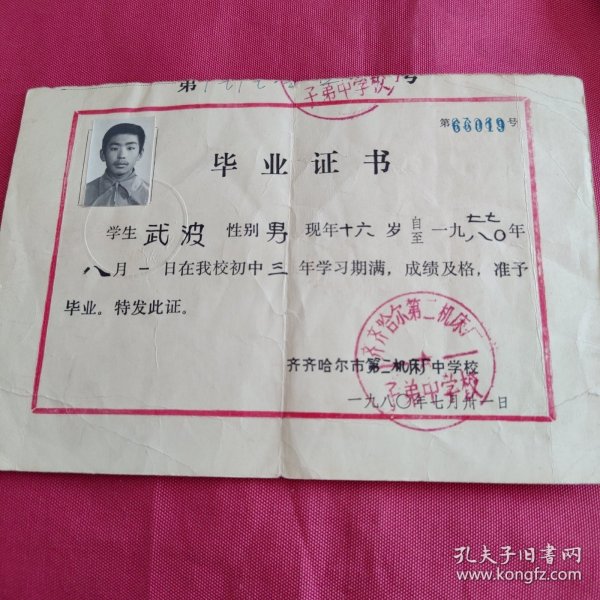 第 号
子弟中学校
第66019号
毕业证书
学生 武波 性别 男 现年十六岁 自至 一九七七八〇年
八月一日在我校初中三年学习期满，成绩及格，准予
毕业。特发此证。
齐齐哈尔第二机床厂
子弟中学校
齐齐哈尔市第二机床厂中学校
一九八〇年七月卅一日
孔夫子旧书网
www.kongfz.com